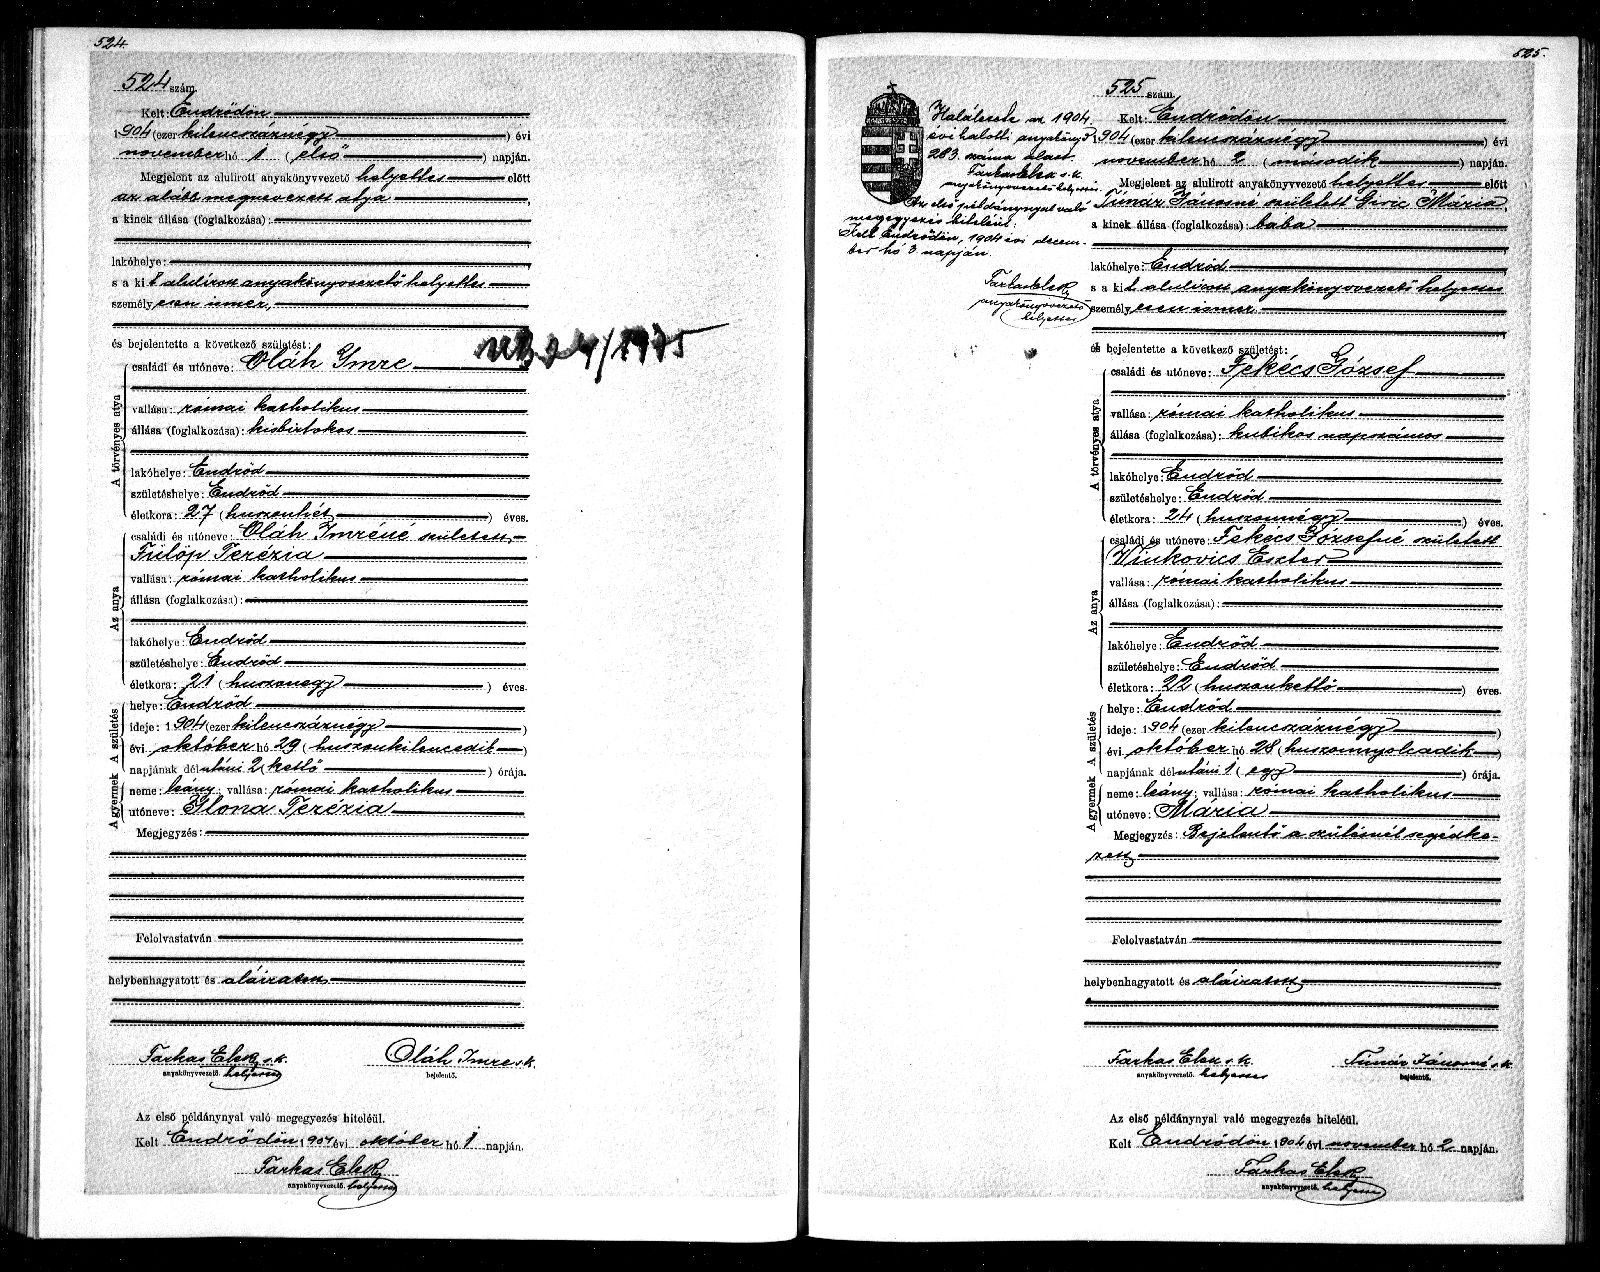 524.
524 szám.
Kelt: Endrődön
1904 (ezer kilenczáznégy) évi
november hó 1 (első) napján.
Megjelent az alulirott anyakönyvvezető helyettes előtt
az alább megnevezett atya,
a kinek állása (foglalkozása):
lakóhelye:
s a kit alulirott anyakönyvvezető helyettes
személyesen ismer,
és bejelentette a következő születést:
A törvényes atya
családi és utóneve: Oláh Imre
vallása: római katholikus
állása (foglalkozása): kisbirtokos
lakóhelye: Endrőd
születéshelye: Endrőd
életkora: 27 (huszonhét) éves.
Az anya
családi és utóneve: Oláh Imréné született
Fülöp Terézia
vallása: római katholikus
állása (foglalkozása):
lakóhelye: Endrőd
születéshelye: Endrőd
életkora: 21 (huszonegy) éves.
A születés
helye: Endrőd
ideje: 1904 (ezer kilenczáznégy)
évi október hó 29 (huszonkilencedik)
napjának délutáni 2 (kettő) órája.
A gyermek
neme: leány; vallása: római katholikus
utóneve: Ilona Terézia
Megjegyzés:
Felolvastatván
helybenhagyatott és aláiratott
Farkas Elek s.k. Oláh Imre s.k.
anyakönyvvezető. helyettes bejelentő.
Az első példánynyal való megegyezés hiteléül.
Kelt Endrődön 1904 évi október hó 1 napján.
Farkas Elek
anyakönyvvezető. helyettes
525.
Haláleset az 1904.
évi halotti anyakönyv
283. száma alatt.
Farkas Elek s.k.
anyakönyvvezető helyettes.
Az első példánynyal való
megegyezés hiteléül:
Kelt Endrődön, 1904 évi decem-
ber hó 3 napján.
Farkas Elek
anyakönyvvezető
helyettes
525 szám.
Kelt: Endrődön
1904 (ezer kilenczáznégy) évi
november hó 2 (második) napján.
Megjelent az alulirott anyakönyvvezető helyettes előtt
Tímár Jánosné született Mária,
a kinek állása (foglalkozása): bába
lakóhelye: Endrőd
s a kit alulirott anyakönyvvezető helyettes
személyesen ismer.
és bejelentette a következő születést:
A törvényes atya
családi és utóneve: Fekécs József
vallása: római katholikus
állása (foglalkozása): kubikos napszámos
lakóhelye: Endrőd
születéshelye: Endrőd
életkora: 24 (huszonnégy) éves.
Az anya
családi és utóneve: Fekécs Józsefné született
Vinkovics Eszter
vallása: római katholikus
állása (foglalkozása):
lakóhelye: Endrőd
születéshelye: Endrőd
életkora: 22 (huszonkettő) éves.
A születés
helye: Endrőd
ideje: 1904 (ezer kilenczáznégy)
évi október hó 28 (huszonnyolcadik)
napjának délutáni 1 (egy) órája.
A gyermek
neme: leány; vallása: római katholikus
utóneve: Mária
Megjegyzés: Bejelentő a szülésnél segédke-
zett
Felolvastatván
helybenhagyatott és aláiratott
Farkas Elek s.k. Tímár Jánosné s.k.
anyakönyvvezető. helyettes bejelentő.
Az első példánynyal való megegyezés hiteléül.
Kelt Endrődön 1904 évi november hó 2 napján.
Farkas Elek
anyakönyvvezető. helyettes